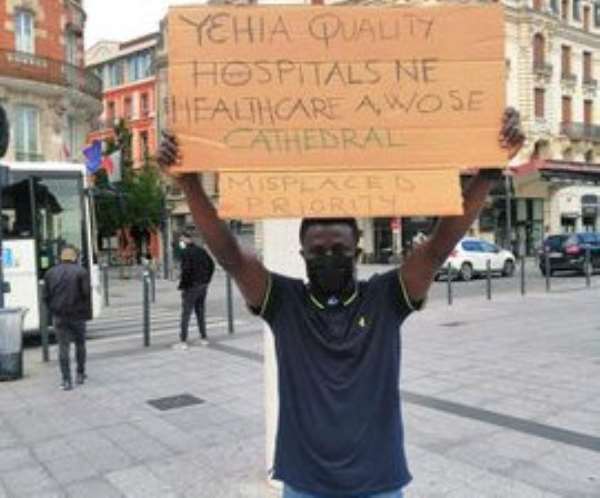 YEHIA QUALITY
HOSPITALS NE
HEALTHCARE A, WOSE
CATHEDRAL
MISPLACED
PRIORITY